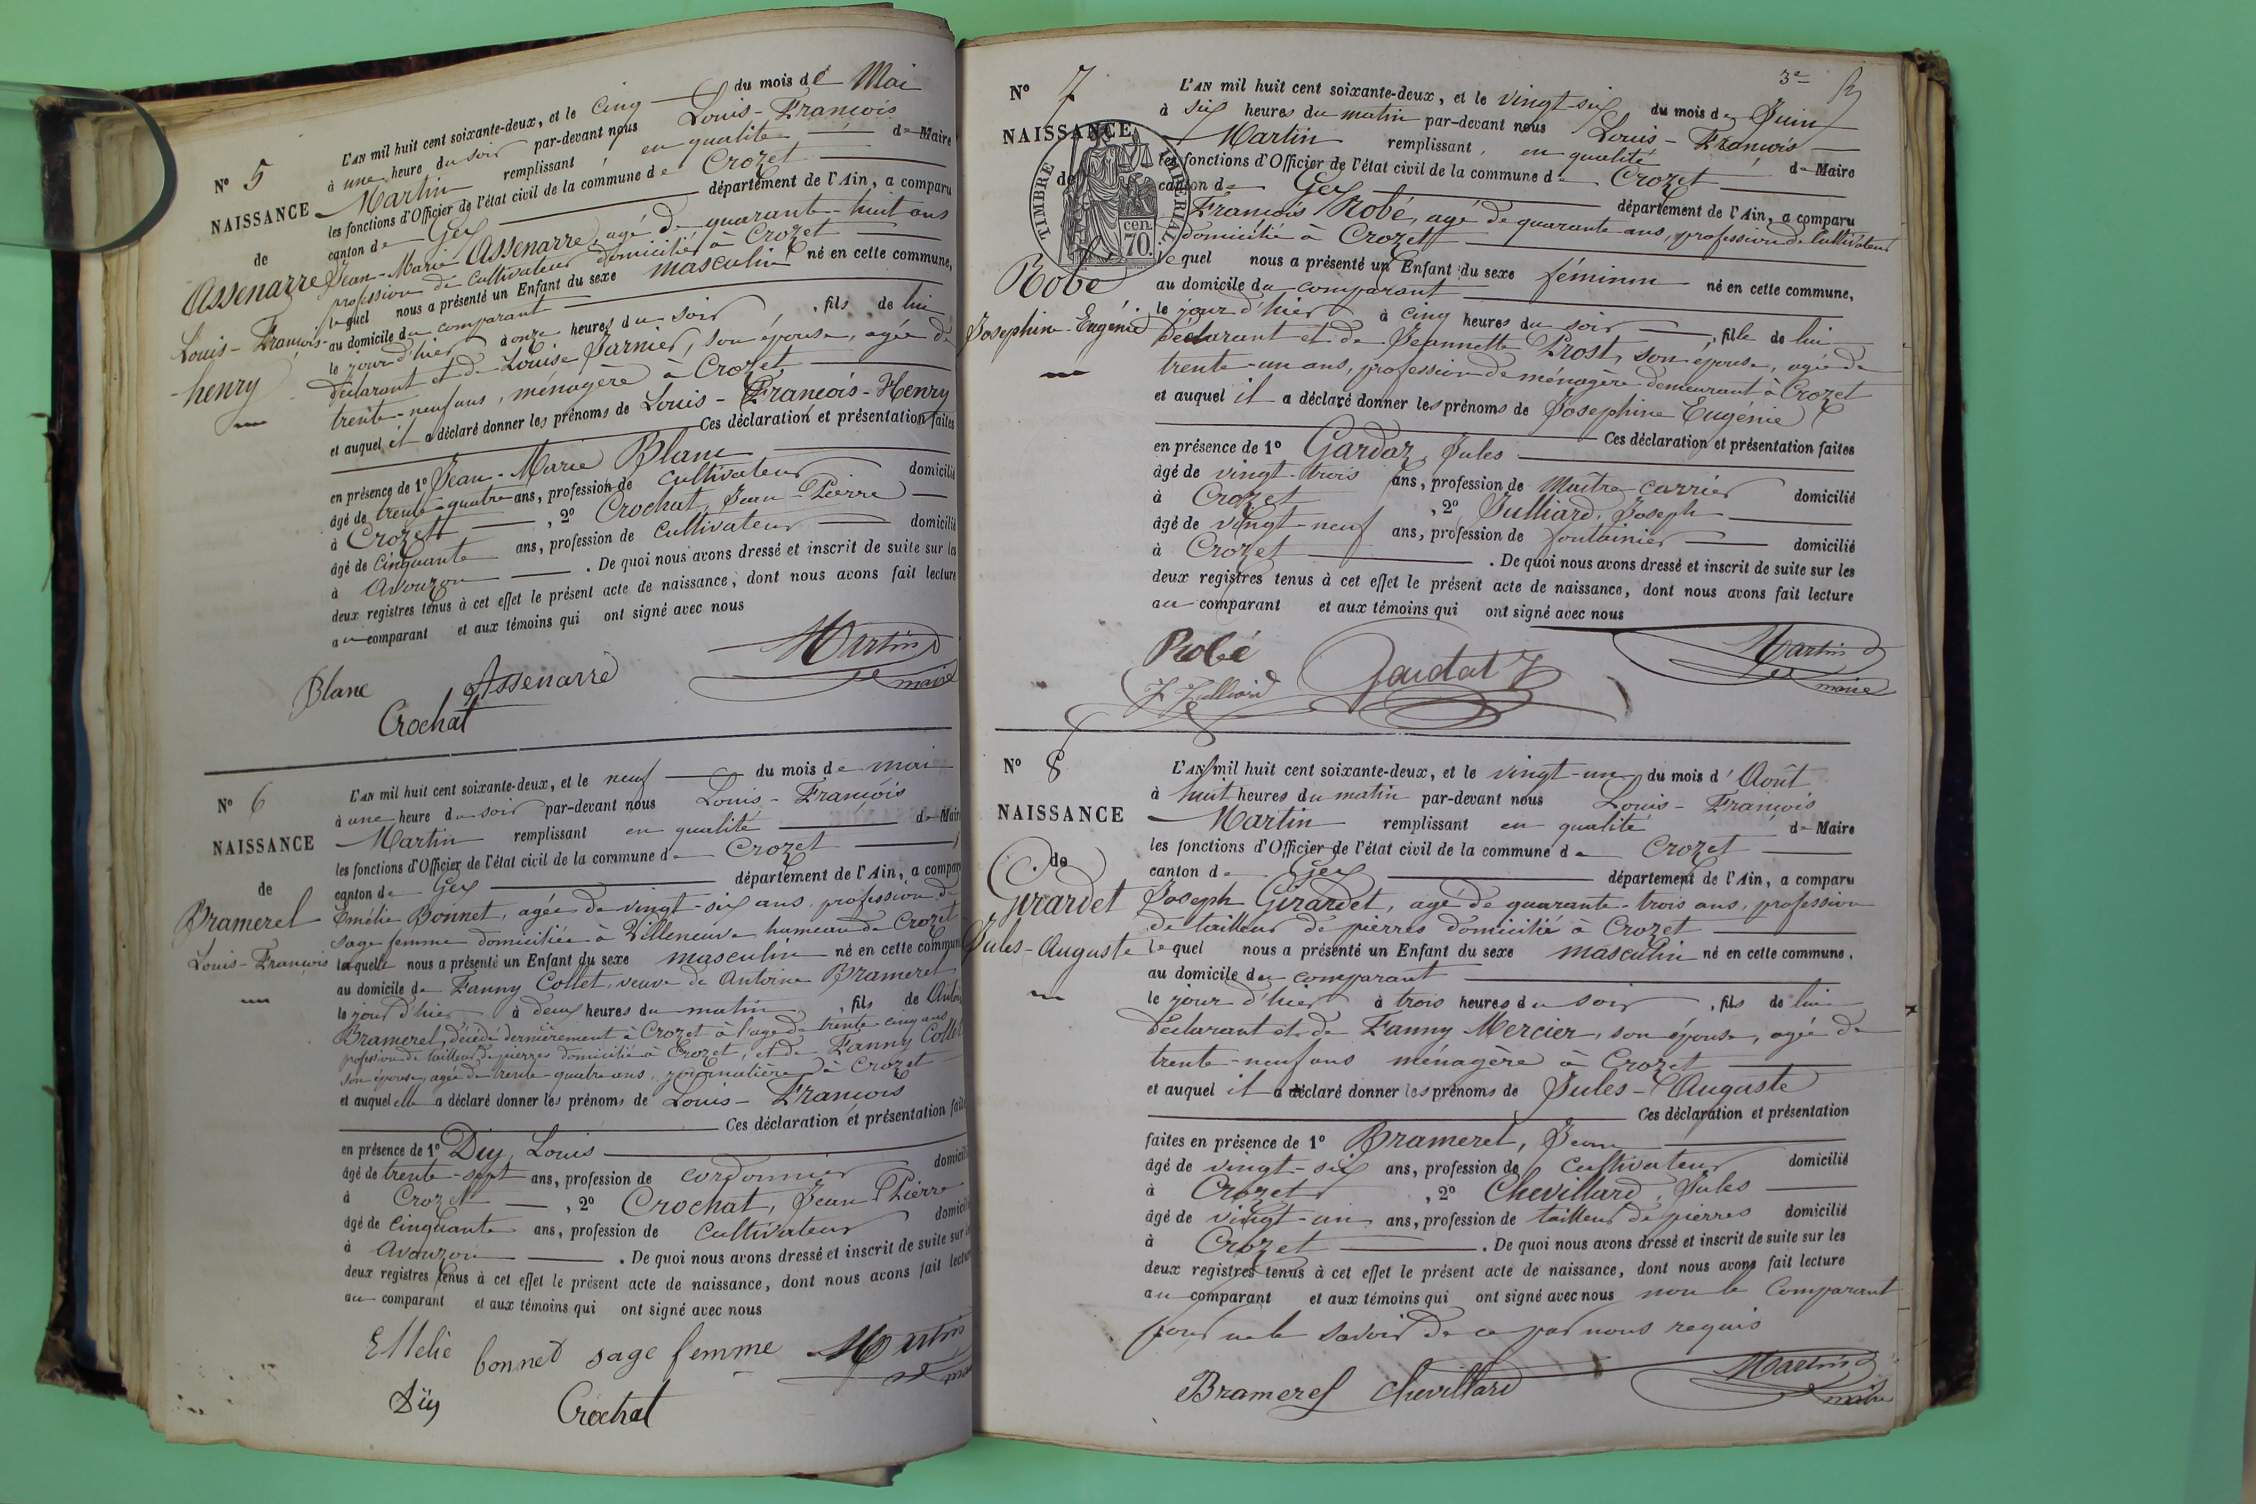 N° 5
NAISSANCE
de
Assenarre
Louis-François-
henry
L'AN mil huit cent soixante-deux, et le cinq du mois de Mai
à une heure du soir par-devant nous Louis-François
Martin remplissant en qualité de Maire
les fonctions d'Officier de l'état civil de la commune de Crozet
canton de Gex département de l'Ain, a comparu
Jean-Marie Assenarre, agé de quarante-huit ans
profession de cultivateur domicilié à Crozet
lequel nous a présenté un Enfant du sexe masculin né en cette commune,
au domicile du comparant
le jour d'hier à onze heures du soir, fils de lui
déclarant et de Louise Jarnier, son épouse, agée de
trente-neuf ans, ménagère à Crozet
et auquel il a déclaré donner les prénoms de Louis-François-Henry
Ces déclaration et présentation faites
en présence de 1° Jean-Marie Blanc
âgé de trente-quatre ans, profession de cultivateur domicilié
à Crozet, 2° Crochat, Jean-Pierre
âgé de cinquante ans, profession de cultivateur domicilié
à Avouzon. De quoi nous avons dressé et inscrit de suite sur les
deux registres tenus à cet effet le présent acte de naissance, dont nous avons fait lecture
au comparant et aux témoins qui ont signé avec nous
Blanc Assenarre Martin
Crochat maire
N° 6
NAISSANCE
de
Bramerel
Louis-François
L'AN mil huit cent soixante-deux, et le neuf du mois de mai
à une heure du soir par-devant nous Louis-François
Martin remplissant en qualité de Maire
les fonctions d'Officier de l'état civil de la commune de Crozet
canton de Gex département de l'Ain, a comparu
Emélie Bonnet, agée de vingt-six ans, profession de
sage femme domiciliée à Villeneuve hameau de Crozet
laquelle nous a présenté un Enfant du sexe masculin né en cette commune
au domicile de Fanny Collet, veuve de Antoine Bramerel
le jour d'hier à deux heures du matin, fils de Antoine
Bramerel, décédé dernièrement à Crozet à l'age de trente cinq ans
profession de tailleur de pierres domicilié à Crozet, et de Fanny Collet
son épouse, agée de trente-quatre ans, journalière à Crozet
et auquel elle a déclaré donner les prénoms de Louis-François
Ces déclaration et présentation faites
en présence de 1° Duy, Louis
âgé de trente-sept ans, profession de cordonnier domicilié
à Crozet, 2° Crochat, Jean Pierre
âgé de cinquante ans, profession de cultivateur domicilié
à Avouzon. De quoi nous avons dressé et inscrit de suite sur les
deux registres tenus à cet effet le présent acte de naissance, dont nous avons fait lecture
au comparant et aux témoins qui ont signé avec nous
bonnet sage femme Martin
Crochat
3e
N° 7
NAISSANCE
de
TIMBRE IMPÉRIAL.
70. cen
Robé
Josephine-Eugénie
L'AN mil huit cent soixante-deux, et le vingt-six du mois de Juin
à six heures du matin par-devant nous Louis-François
Martin remplissant en qualité de Maire
les fonctions d'Officier de l'état civil de la commune de Crozet
canton de Gex département de l'Ain, a comparu
François Robé, agé de quarante ans, profession de Cultivateur
domicilié à Crozet
lequel nous a présenté un Enfant du sexe féminin né en cette commune,
au domicile du comparant
le jour d'hier à cinq heures du soir, fille de lui
déclarant et de Jeannette Prost, son épouse, agée de
trente-un ans, profession de ménagère demeurant à Crozet
et auquel il a déclaré donner les prénoms de Josephine Eugénie
Ces déclaration et présentation faites
en présence de 1° Gardaz, Jules
âgé de vingt-trois ans, profession de Maître carrier domicilié
à Crozet, 2° Julliard, Joseph
âgé de vingt-neuf ans, profession de fontainier domicilié
à Crozet. De quoi nous avons dressé et inscrit de suite sur les
deux registres tenus à cet effet le présent acte de naissance, dont nous avons fait lecture
au comparant et aux témoins qui ont signé avec nous
Robé Martin
J Julliard maire
N° 8
NAISSANCE
de
Girardet
Jules-Auguste
L'AN mil huit cent soixante-deux, et le vingt-un du mois d'Août
à huit heures du matin par-devant nous Louis-François
Martin remplissant en qualité de Maire
les fonctions d'Officier de l'état civil de la commune de Crozet
canton de Gex département de l'Ain, a comparu
Joseph Girardet, agé de quarante-trois ans, profession
de tailleur de pierres domicilié à Crozet
lequel nous a présenté un Enfant du sexe masculin né en cette commune,
au domicile du comparant
le jour d'hier à trois heures du soir, fils de lui
déclarant et de Fanny Mercier, son épouse, agée de
trente-neuf ans ménagère à Crozet
et auquel il a déclaré donner les prénoms de Jules-Auguste
Ces déclaration et présentation
faites en présence de 1° Bramerel, Jean
âgé de vingt-six ans, profession de cultivateur domicilié
à Crozet, 2° Chevillard, Jules
âgé de vingt-un ans, profession de tailleur de pierres domicilié
à Crozet. De quoi nous avons dressé et inscrit de suite sur les
deux registres tenus à cet effet le présent acte de naissance, dont nous avons fait lecture
au comparant et aux témoins qui ont signé avec nous non le Comparant
pour ne le savoir de ce par nous requis
Bramerel Chevillard Martin
maire